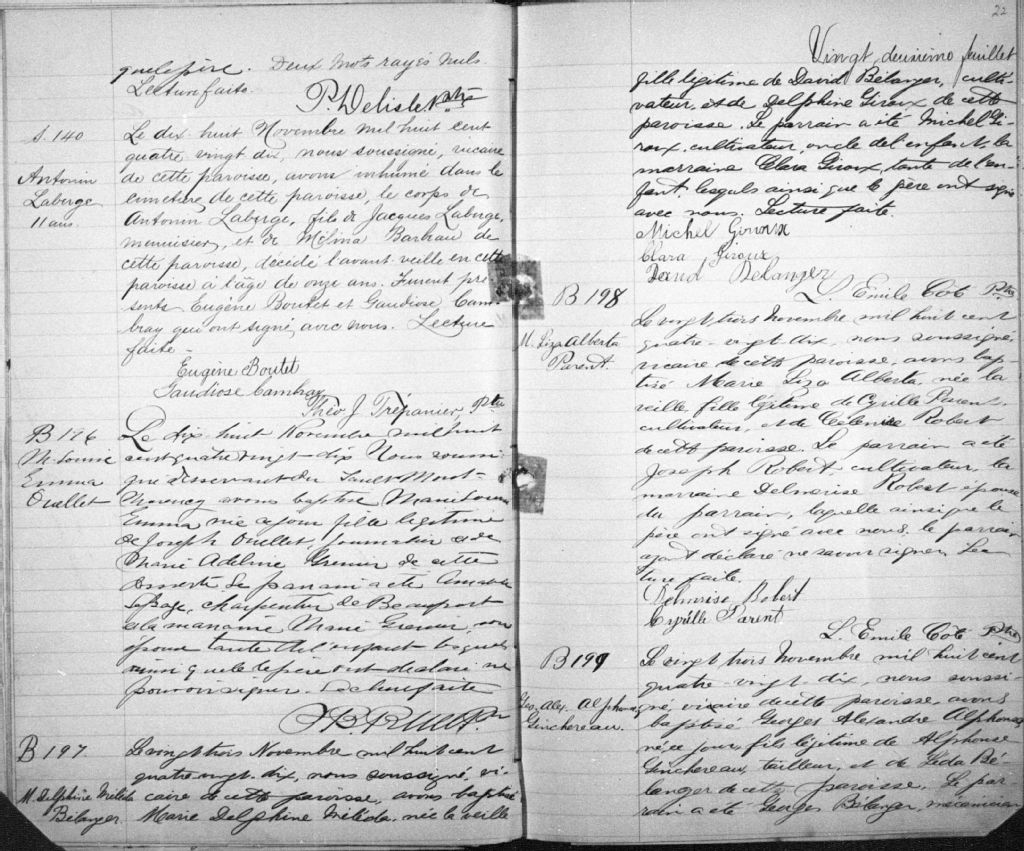 que le père. Deux mots rayés nuls
Lecture faite.
P. Delisle Ptre
S. 140
Antonin
Laberge
11 ans.
Le dix huit Novembre mil huit cent
quatre vingt dix, nous soussigné, vicaire
de cette paroisse, avons inhumé dans le
cimetière de cette paroisse, le corps de
Antonin Laberge, fils de Jacques Laberge,
menuisier, et de Mélina Barbeau de
cette paroisse, décédé l'avant veille en cette
paroisse à l'âge de onze ans. Furent pré
sents Eugène Boutet et Gaudiose Cam-
bray qui ont signé avec nous. Lecture
faite -
Eugène Boutet
Gaudiose Cambray
Théo J. Trépanier, Ptre
B 196
M. Louise
Emma
Ouellet
Le dix huit Novembre mil huit
cent quatre vingt dix Nous soussi
gné desservant du Sault Mont-
Morency avons baptisé Marie Louise
Emma née ce jour fille légitime
de Joseph Ouellet, journalier et de
Marie Adeline Grenier de cette
desserte. Le parrain a été
Lepage, charpentier de Beauport
et la marraine Marie Grenier, son
épouse tante de l'enfant lesquels
ainsi que le père ont déclaré ne
pouvoir signer. Lecture faite
Ptr
B 197
M. Delphine Mélida
Bélanger.
Le vingt trois Novembre mil huit cent
quatre vingt-dix, nous soussigné, vi-
caire de cette paroisse, avons baptisé
Marie Delphine Mélida, née la veille
22
Vingt deuxième feuillet
fille légitime de David Bélanger, culti-
vateur, et de Delphine Giroux de cette
paroisse. Le parrain a été Michel Gi-
roux, cultivateur, oncle de l'enfant, la
marraine Clara Giroux, tante de l'en-
fant, lesquels ainsi que le père ont signé
avec nous. Lecture faite.
Michel Giroux
Clara Giroux
David Belanger
L. Emile Coté Ptre
B 198
M. Liza Alberta
Parent.
Le vingt trois Novembre mil huit cent
quatre-vingt dix, nous soussigné,
vicaire de cette paroisse, avons bap-
tisé Marie Liza Alberta, née la
veille, fille légitime de Cyrille Parent,
cultivateur, et de Robert
de cette paroisse. Le parrain a été
Joseph Robert cultivateur, la
marraine Delmerise Robert épouse
du parrain, laquelle ainsi que le
père ont signé avec nous, le parrain
ayant déclaré ne savoir signer. Lec
ture faite.
Delmerise Robert
Cyrille Parent
L. Emile Coté Ptre
B 199
Geo. Alex. Alphonse
Ginchereau.
Le vingt trois Novembre mil huit cent
quatre-vingt-dix, nous soussi-
gné, vicaire de cette paroisse, avons
baptisé Georges Alexandre Alphonse,
né ce jour, fils légitime de Alphonse
Ginchereau, tailleur, et de Léda Bé-
langer de cette paroisse. Le par
rain a été Georges Bélanger, mécanicien